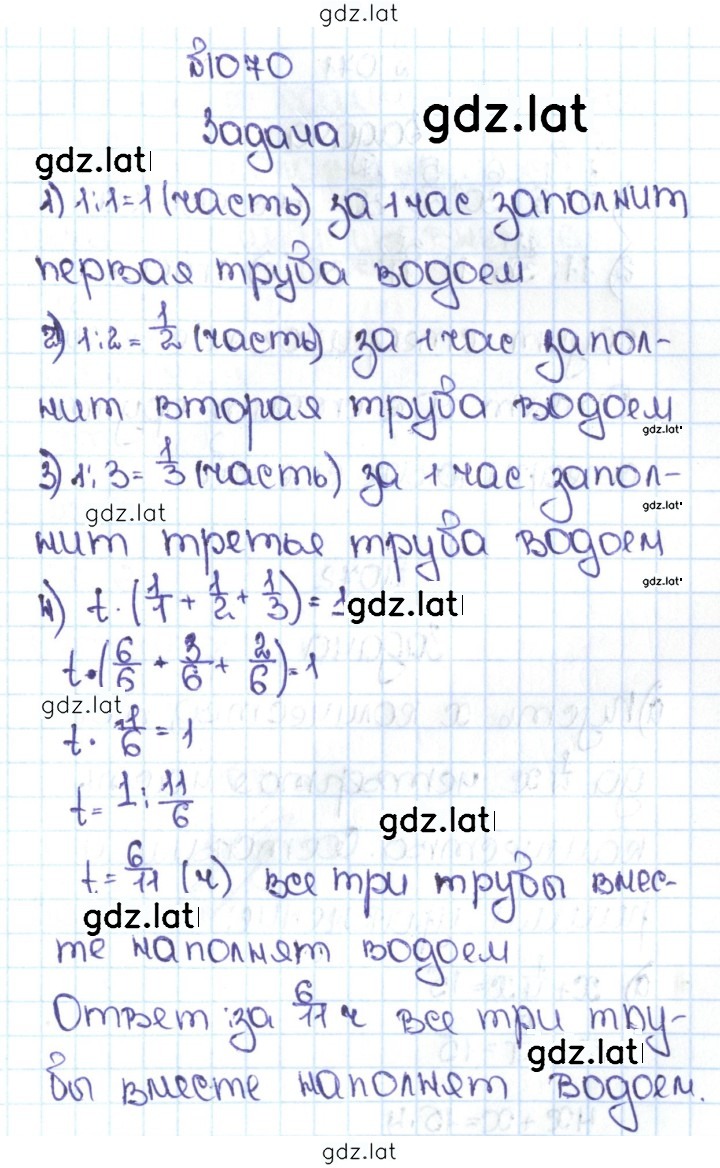 gdz.lat
№1070
Задача
gdz.lat
gdz.lat
1) 1:1=1 (часть) за 1 час заполнит
первая труба водоем
2) 1:2=1/2 (часть) за 1 час запол-
нит вторая труба водоем
gdz.lat
3) 1:3=1/3 (часть) за 1 час запол-
gdz.lat
gdz.lat
нит третья труба водоем
gdz.lat
4) t·(1/1+1/2+1/3)=1
gdz.lat
t·(6/6+3/6+2/6)=1
gdz.lat
t·11/6=1
t=1:11/6
gdz.lat
t=6/11 (ч) все три трубы вмес-
gdz.lat
те наполнят водоем
Ответ: за 6/11 ч все три тру-
gdz.lat
бы вместе наполнят водоем.
gdz.lat